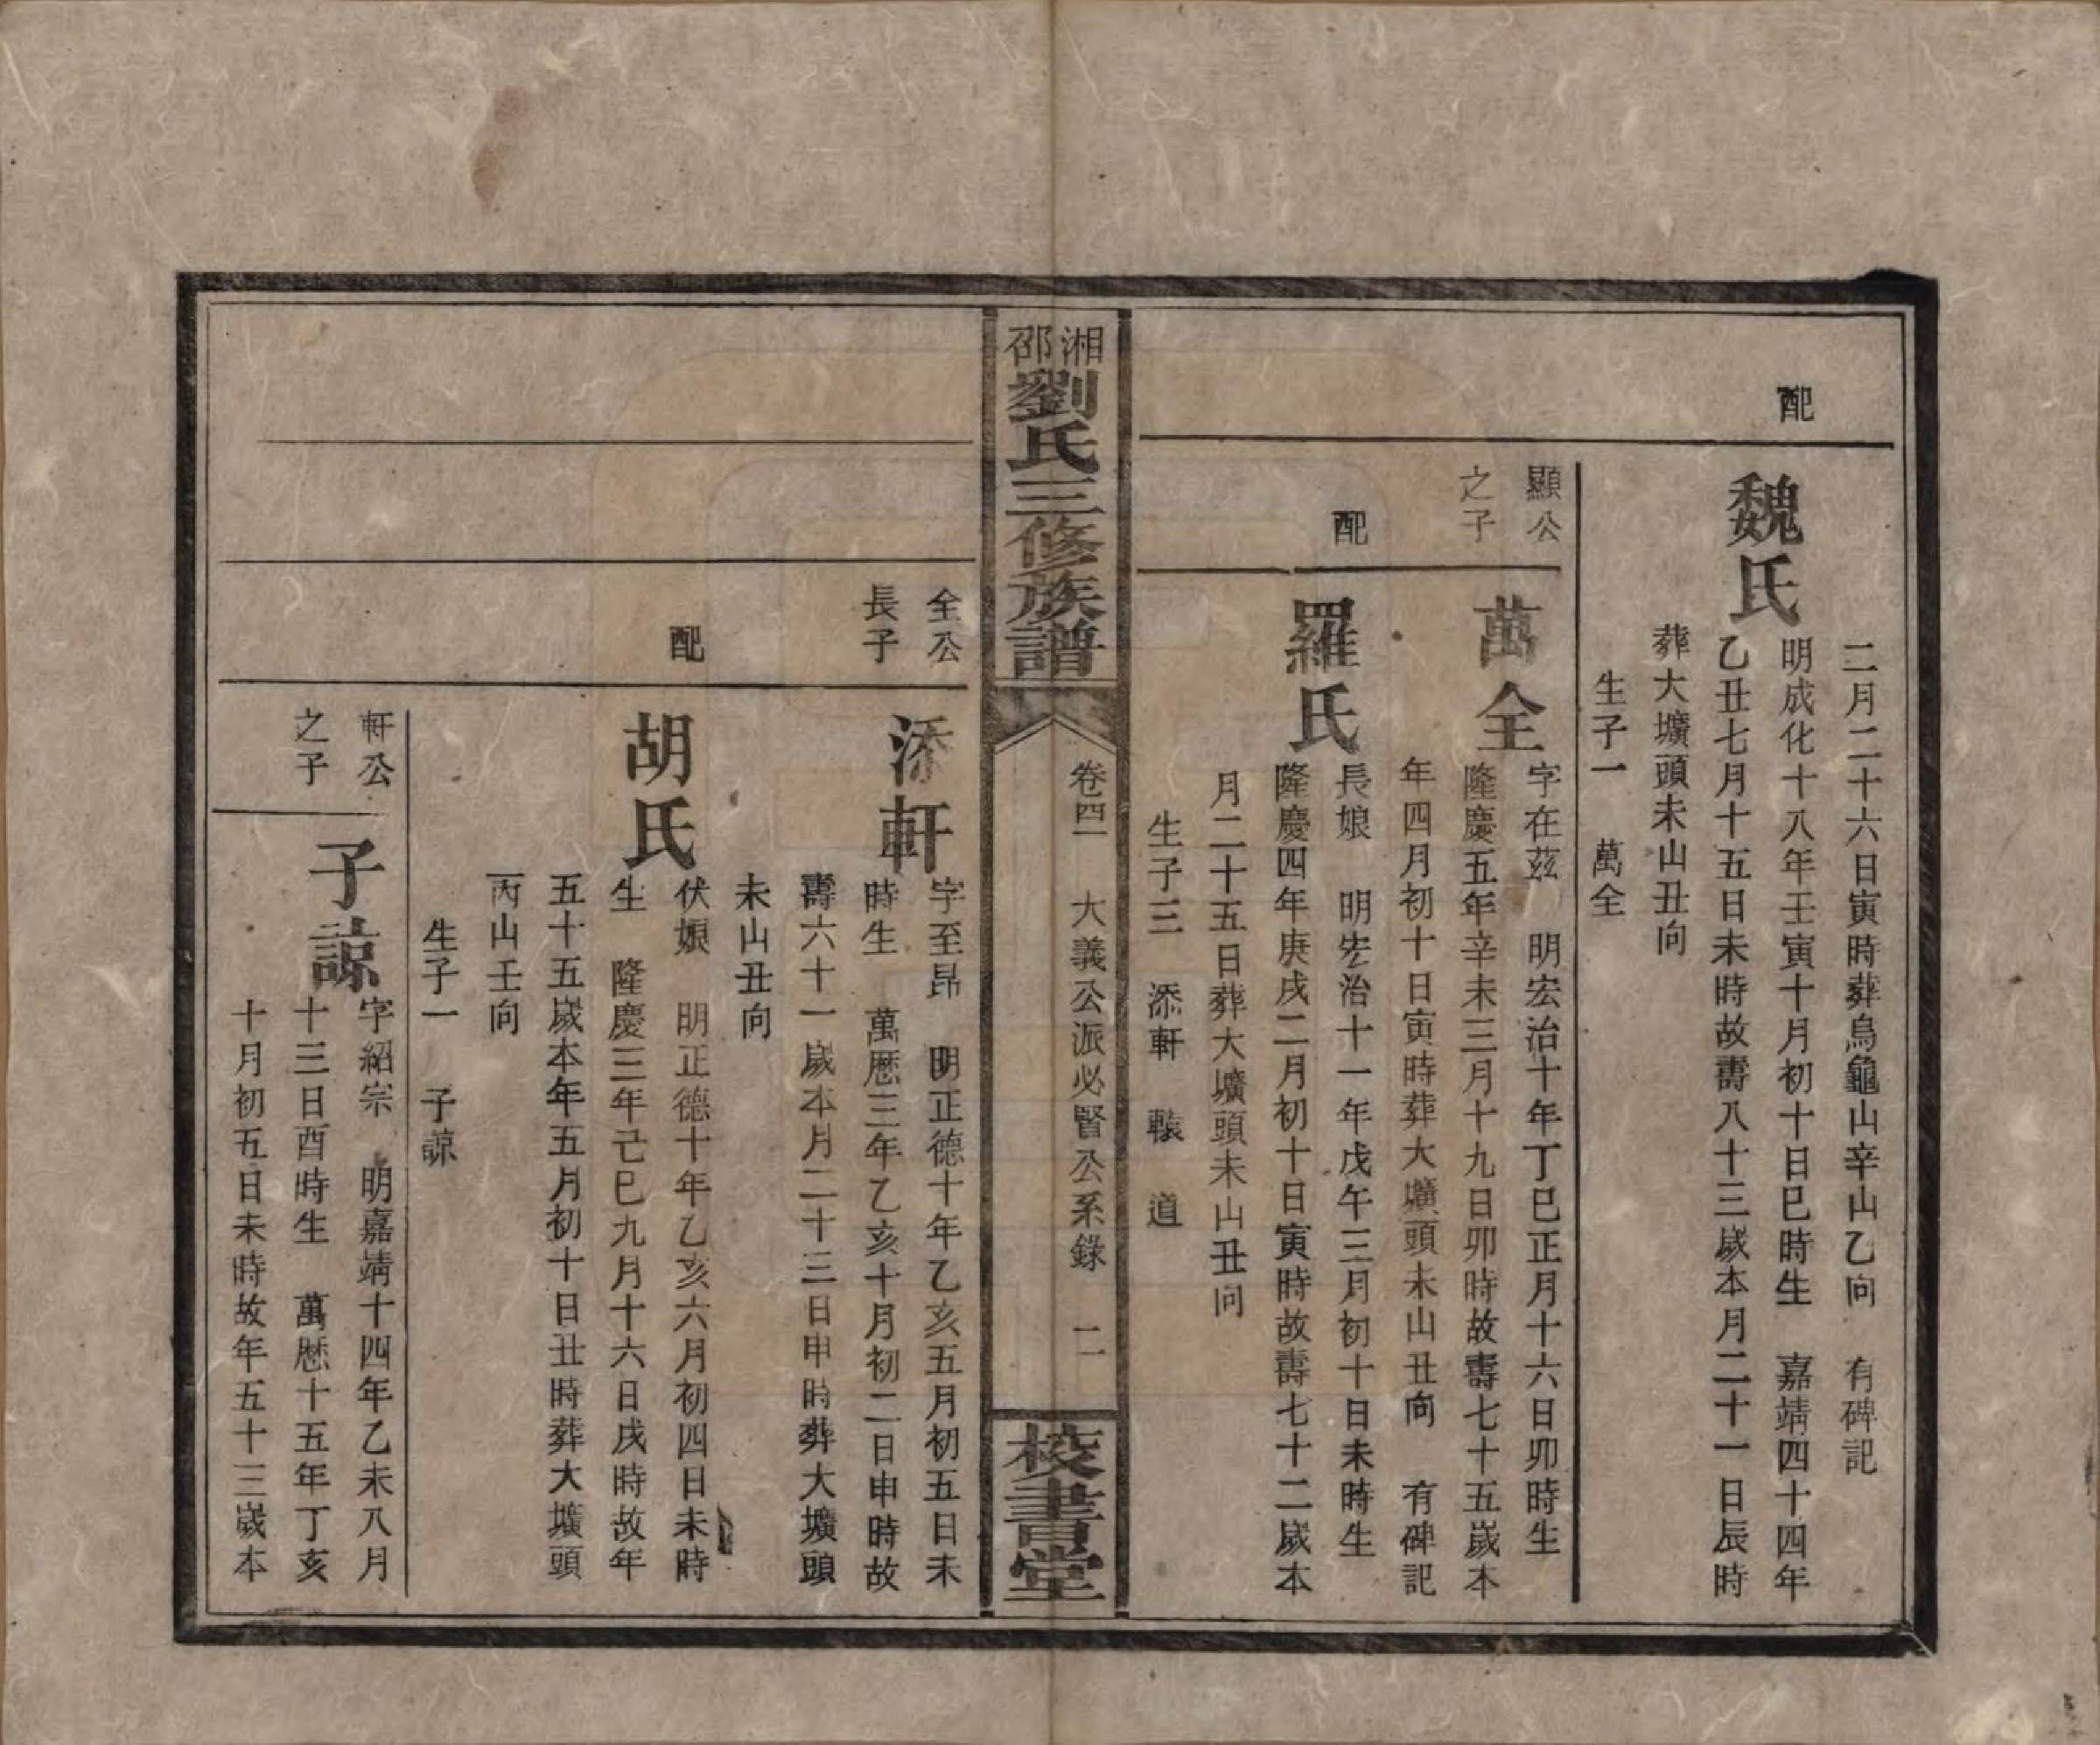 二月二十六日寅時葬烏龜山辛山乙向 有碑記
配
魏氏
明成化十八年壬寅十月初十日巳時生 嘉靖四十四年
乙丑七月十五日未時故壽八十三歲本月二十一日辰時
葬大壙頭未山丑向
生子一 萬全
顯公
之子
萬全
字在茲 明宏治十年丁巳正月十六日卯時生
隆慶五年辛未三月十九日卯時故壽七十五歲本
年四月初十日寅時葬大壙頭未山丑向 有碑記
配
羅氏
長娘 明宏治十一年戊午三月初十日未時生
隆慶四年庚戌二月初十日寅時故壽七十二歲本
月二十五日葬大壙頭未山丑向
生子三 添軒 轅 道
湘
邵
劉氏三修族譜
卷四 大義公派必賢公系錄 二
校書堂
全公
長子
添軒
字至昂 明正德十年乙亥五月初五日未
時生 萬歷三年乙亥十月初二日申時故
壽六十一歲本月二十三日申時葬大壙頭
未山丑向
配
胡氏
伏娘 明正德十年乙亥六月初四日未時
生 隆慶三年己巳九月十六日戌時故年
五十五歲本年五月初十日丑時葬大壙頭
丙山壬向
生子一 子諒
軒公
之子
子諒
字紹宗 明嘉靖十四年乙未八月
十三日酉時生 萬歷十五年丁亥
十月初五日未時故年五十三歲本